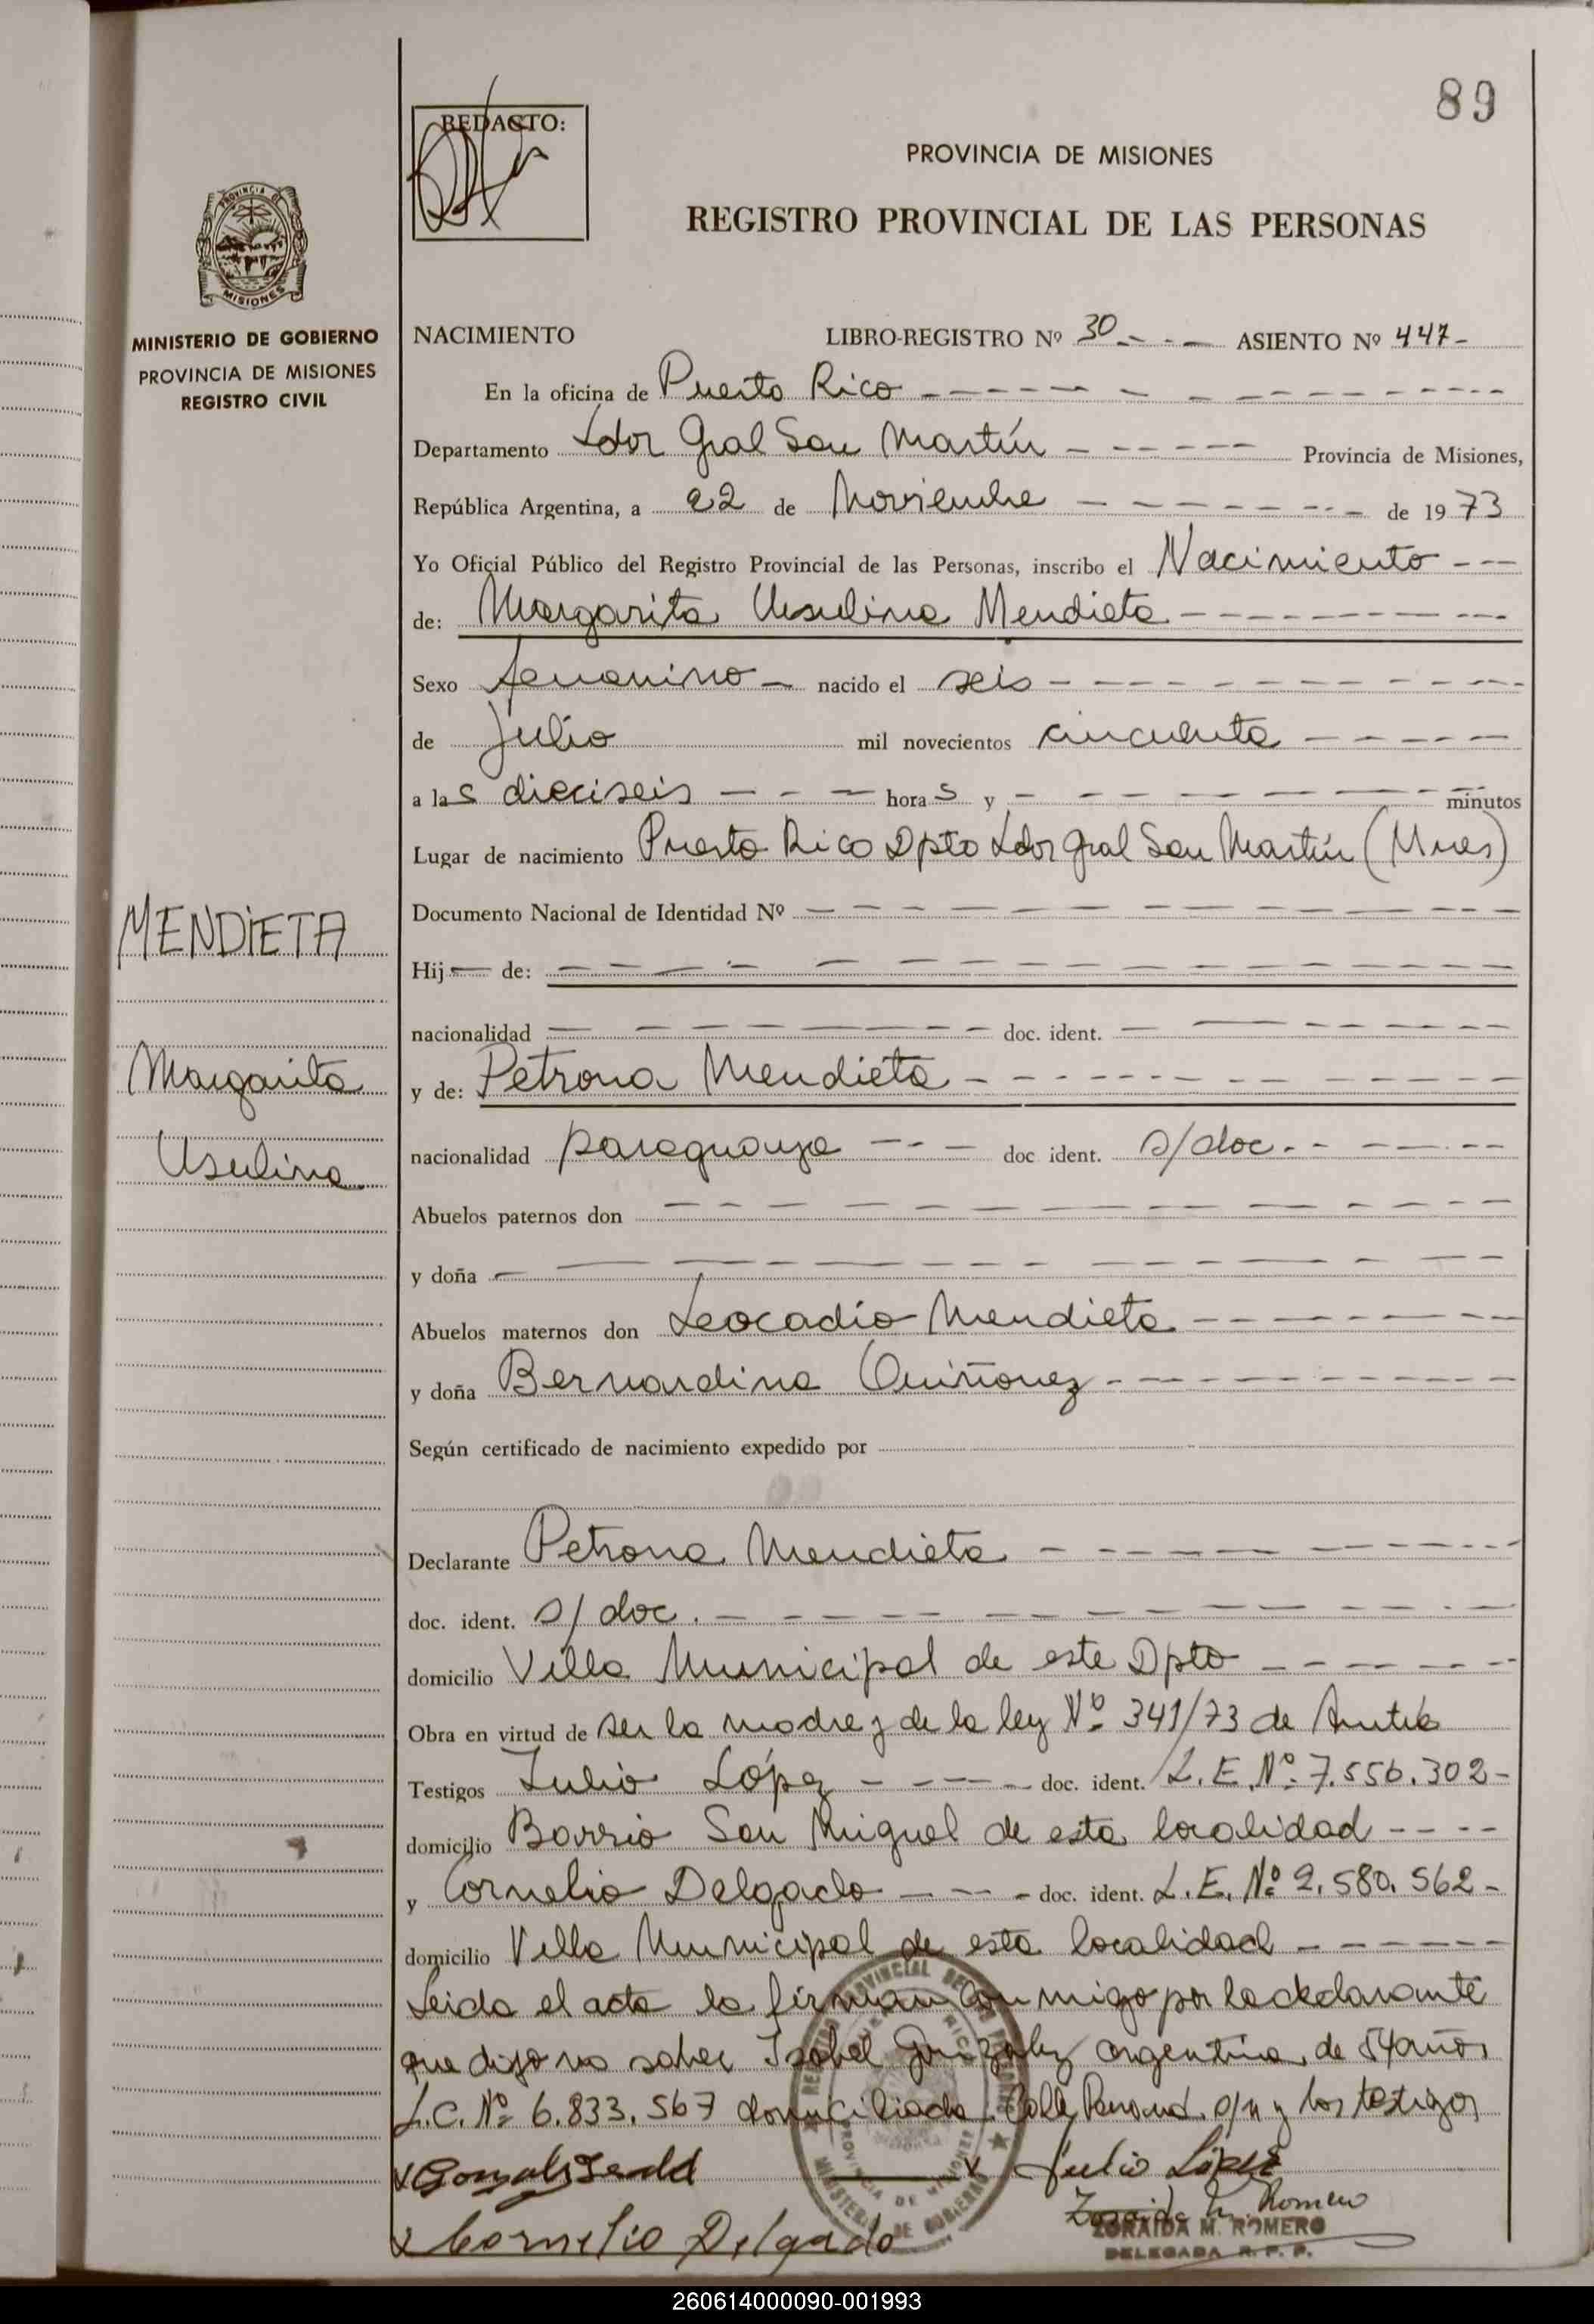 89
REDACTO:
PROVINCIA DE MISIONES
REGISTRO PROVINCIAL DE LAS PERSONAS
PROVINCIA DE MISIONES
MINISTERIO DE GOBIERNO
PROVINCIA DE MISIONES
REGISTRO CIVIL
NACIMIENTO LIBRO-REGISTRO Nº 30 - - - ASIENTO Nº 447-
En la oficina de Puerto Rico
Departamento Ldor Gral San Martín Provincia de Misiones,
República Argentina, a 22 de Noviembre de 1973
Yo Oficial Público del Registro Provincial de las Personas, inscribo el Nacimiento
de: Margarita Usulina Mendieta
Sexo femenino nacido el seis
de Julio mil novecientos cincuenta
a las dieciseis horas y minutos
Lugar de nacimiento Puerto Rico Dpto Ldor Gral San Martín (Mnes)
Documento Nacional de Identidad Nº
MENDIETA
Hij de:
nacionalidad doc. ident.
Margarita
y de: Petrona Mendieta
Usulina
nacionalidad paraguaya doc ident. s/doc.
Abuelos paternos don
y doña
Abuelos maternos don Leocadio Mendieta
y doña Bernardina Quiñonez
Según certificado de nacimiento expedido por
Declarante Petrona Mendieta
doc. ident. s/doc.
domicilio Villa Municipal de este Dpto
Obra en virtud de ser la madre y de la ley Nº 341/73 de
Testigos Julio López doc. ident. L.E. Nº 7.556.302-
domicilio Barrio San Miguel de esta localidad
y Cornelio Delgado doc. ident. L.E. Nº 2.580.562-
domicilio Villa Municipal de esta localidad
Leida el acta la firman conmigo por la declarante
que dijo no saber Isabel González argentina de 54 años
L.C. Nº 6.833.567 domiciliada Calle s/n y los testigos
Julio López
Cornelio Delgado
Zoraida M. Romero
ZORAIDA M. ROMERO
DELEGADA R. P. P.
260614000090-001993